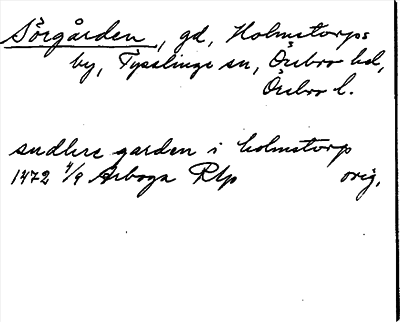 Sörgården, gd, Holmstorps
by, Tysslinge sn, Örebro hd,
Örebro l.
sudhre garden i holmstorp
1472 4/9 Arboga RAp orig.